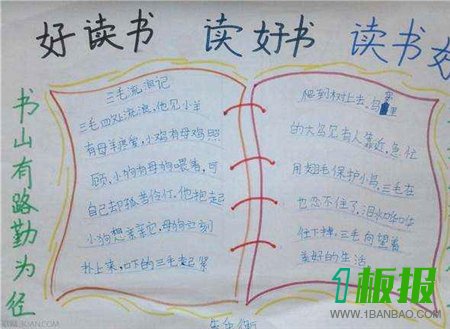 好读书 读好书 读书好
书山有路勤为径
三毛流浪记
三毛四处流浪,他见小羊
有母羊疼爱,小鸡有母鸡照
顾,小狗有母狗喂着,可
自己却孤苦伶仃,他抱起
小狗想亲亲它,母狗立刻
扑上来,吓的三毛赶紧
爬到树上去,鸟窝里
的大鸟见有人靠近,急忙
用翅毛保护小鸟,三毛在
也忍不住了,泪水哗哗
往下掉,三毛向望着
美好的生活
1板报
WWW.1BANBAO.COM